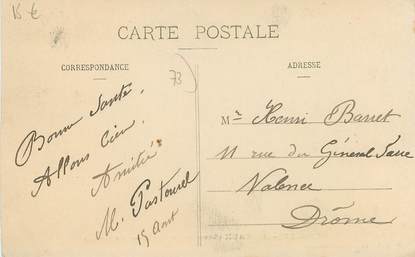 15 €
CARTE POSTALE
CORRESPONDANCE
73
ADRESSE
Bonne Santé.
Allons bien.
Amitié
M. Pastourel
15 Aout
Mr Henri Barret
11 rue du Général Farre
Valence
Drôme